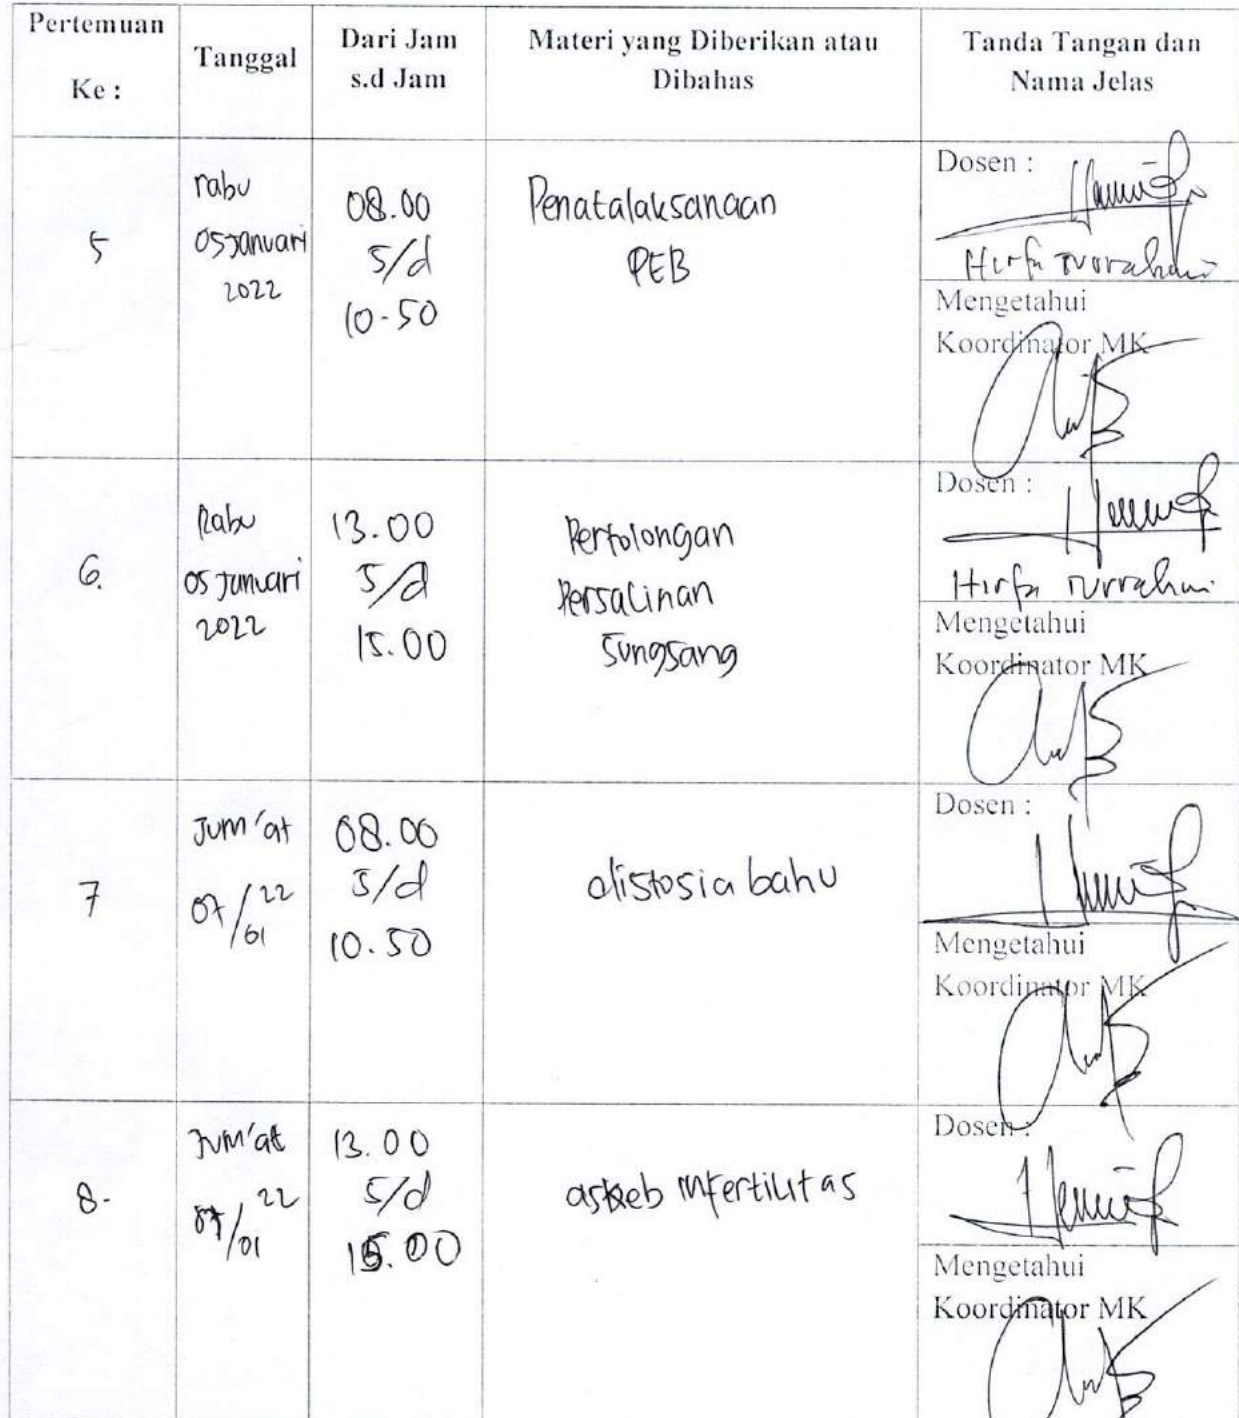 Pertemuan
Ke :
Tanggal
Dari Jam
s.d Jam
Materi yang Diberikan atau
Dibahas
Tanda Tangan dan
Nama Jelas
5
rabu
05 Januari
2022
08.00
s/d
10-50
Penatalaksanaan
PEB
Dosen :
Mengetahui
Koordinator MK
6.
Rabu
05 Januari
2022
13.00
s/d
15.00
Pertolongan
Persalinan
Sungsang
Dosen :
Mengetahui
Koordinator MK
7
Jum'at
07/22
01
08.00
s/d
10.50
distosia bahu
Dosen :
Mengetahui
Koordinator MK
8.
Jum'at
07/22
01
13.00
s/d
15.00
askeb infertilitas
Dosen :
Mengetahui
Koordinator MK